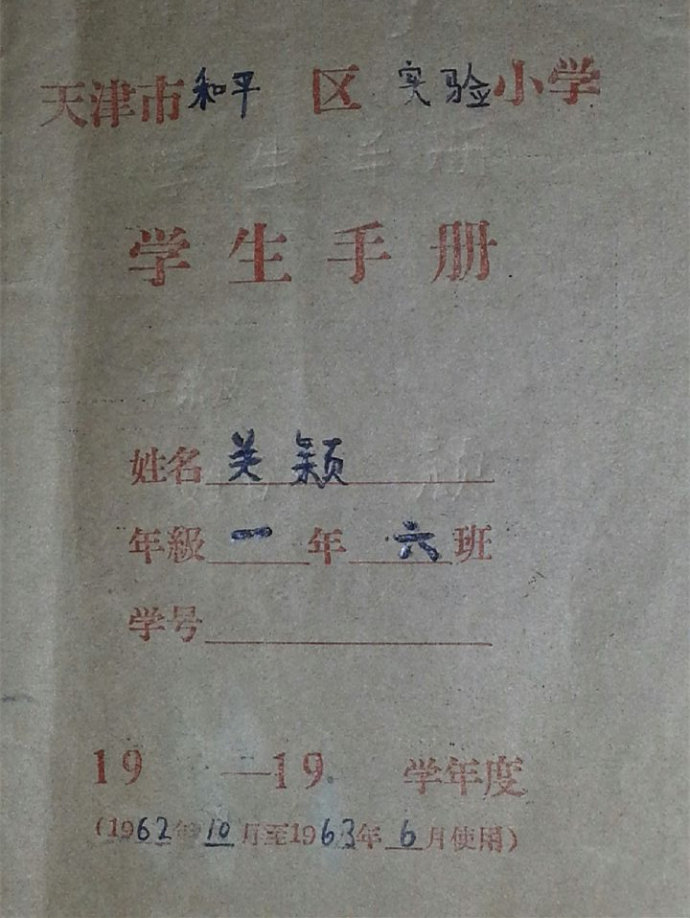 天津市和平区实验小学
学生手册
姓名 关颖
年級 一年 六班
学号
19 —19 学年度
(1962年10月至1963年6月使用)